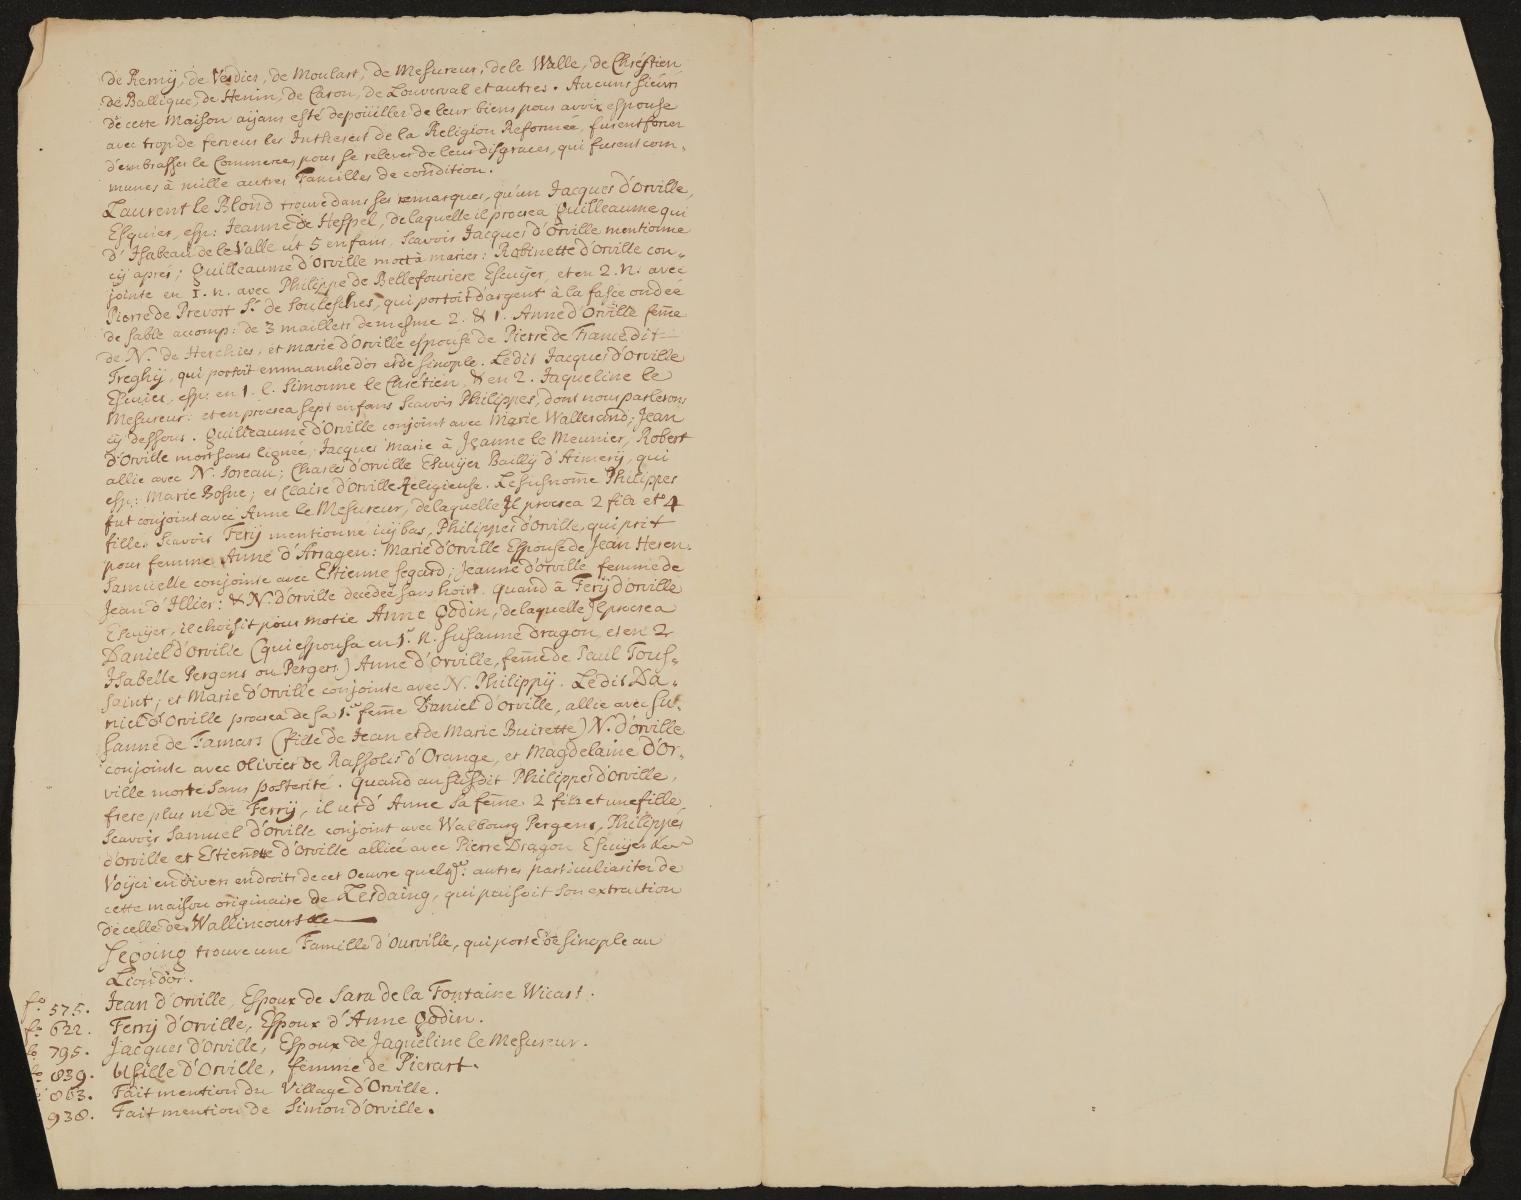 de Remÿ, de Verdier, de Moulart, de Mesureur, de le Walle, de Chréstien
de Ballique, de Henin, de Caron, de Louverval et autres. Aucuns
de cette Maison aÿans esté depoüillez de leur biens pour avoir espousé
avec trop de ferveur les Inthereit de la Religion Reformée, furent
d'embrasser le Commerce, pour se relever de leur disgraces, qui furent com-
munes à mille autres Familles de condition.
Laurent le Blond trouve dans ses remarques, qu'un Jacques d'Orville,
Esquier, esp: Jeanne de Hespel, de laquelle il procrea Guilleaume qui
d'Isabeau de le Valle ut 5 enfans, Scavoir Jacques d'Orville mentionné
cÿ aprés; Guilleaume d'Orville mort à marier: Robinette d'Orville con-
jointe en 1. n. avec Philippe de Bellefouriere Escuÿer, et en 2. n. avec
Pierre de Prevost Sr. de Soulesches, qui portoit d'argent à la fasce ondée
de sable accomp: de 3 maillets de mesme 2. & 1. Anne d'Orville feme
de N. de Herchies, et marie d'Orville espouse de Pierre de France dit
Treghÿ, qui portoit emmanché d'or et de sinople. Ledit Jacques d'Orville
Escuier, esp: en 1. l. Simonne le Chrétien, & en 2. Jaqueline le
Mesureur: et en procrea sept enfans Scavoir Philippes, dont nous parlerons
cÿ dessous. Guilleaume d'Orville conjoint avec Marie Wallerand; Jean
d'Orville mort sans lignée, Jacques marié à Jeanne le Meunier, Robert
allié avec N. Soreau; Charles d'Orville Escuÿer Baillÿ d'Aimerÿ, qui
esp: Marie Bosne; et Claire d'Orville Religieuse. Le susnomé Philippes
fut conjoint avec Anne le Mesureur, de laquelle Il procrea 2 filz et 4
fille. Scavoir Ferÿ mentionné icÿ bas, Philippes d'Orville, qui prit
pour femme Anne d'Arragen: Marie d'Orville Espouse de Jean Heren.
Samuelle conjointe avec Estienne Segard; Jeanne d'Orville femme de
Jean d'Illier: & N. d'Orville decedée sans hoirs. Quand à Ferÿ d'Orville
Escuÿer, il choisit pour motié Anne Godin, de laquelle Il procrea
Daniel d'Orville (qui espousa en 1r. n. Susanne dragon, et en 2
Isabelle Pergens ou Pergers) Anne d'Orville, feme de Paul Tous-
saint; et Marie d'Orville conjointe avec N. Philippÿ. Ledit Da-
niel d'Orville procrea de sa 1re. feme Daniel d'Orville, allié avec Su-
sanne de Famars (fille de Jean et de Marie Buirette) N. d'Orville
conjointe avec Olivier de Rassolis d'Orange, et Magdelaine d'Or-
ville morte sans posterité. Quand au susdit Philippes d'Orville,
frere plus né de Ferrÿ, il ut d'Anne sa feme 2 filz et une fille,
Scavoir Samuel d'Orville conjoint avec Walbourg Pergens, Philippes
d'Orville et Estiennette d'Orville alliée avec Pierre Dragon Escuÿer
Voÿci en divers endroits de cet Oeuvre quelqs. autres particuliaritez de
cette maison originaire de Lesdaing, qui puisoit son extraction
de celle de Wallincourt &c
Segoing trouve une Famille d'Ourville, qui porte de sinople au
Lion d'or.
fo. 575. Jean d'Orville, Espoux de Sara de la Fontaine Wicart.
fo. 622. Ferrÿ d'Orville, Espoux d'Anne Godin.
fo. 795. Jacques d'Orville, Espoux de Jaqueline le Mesureur.
fo. 839. Usille d'Orville, femme de Pierart.
863. Fait mention du Village d'Orville.
938. Fait mention de Simon d'Orville.